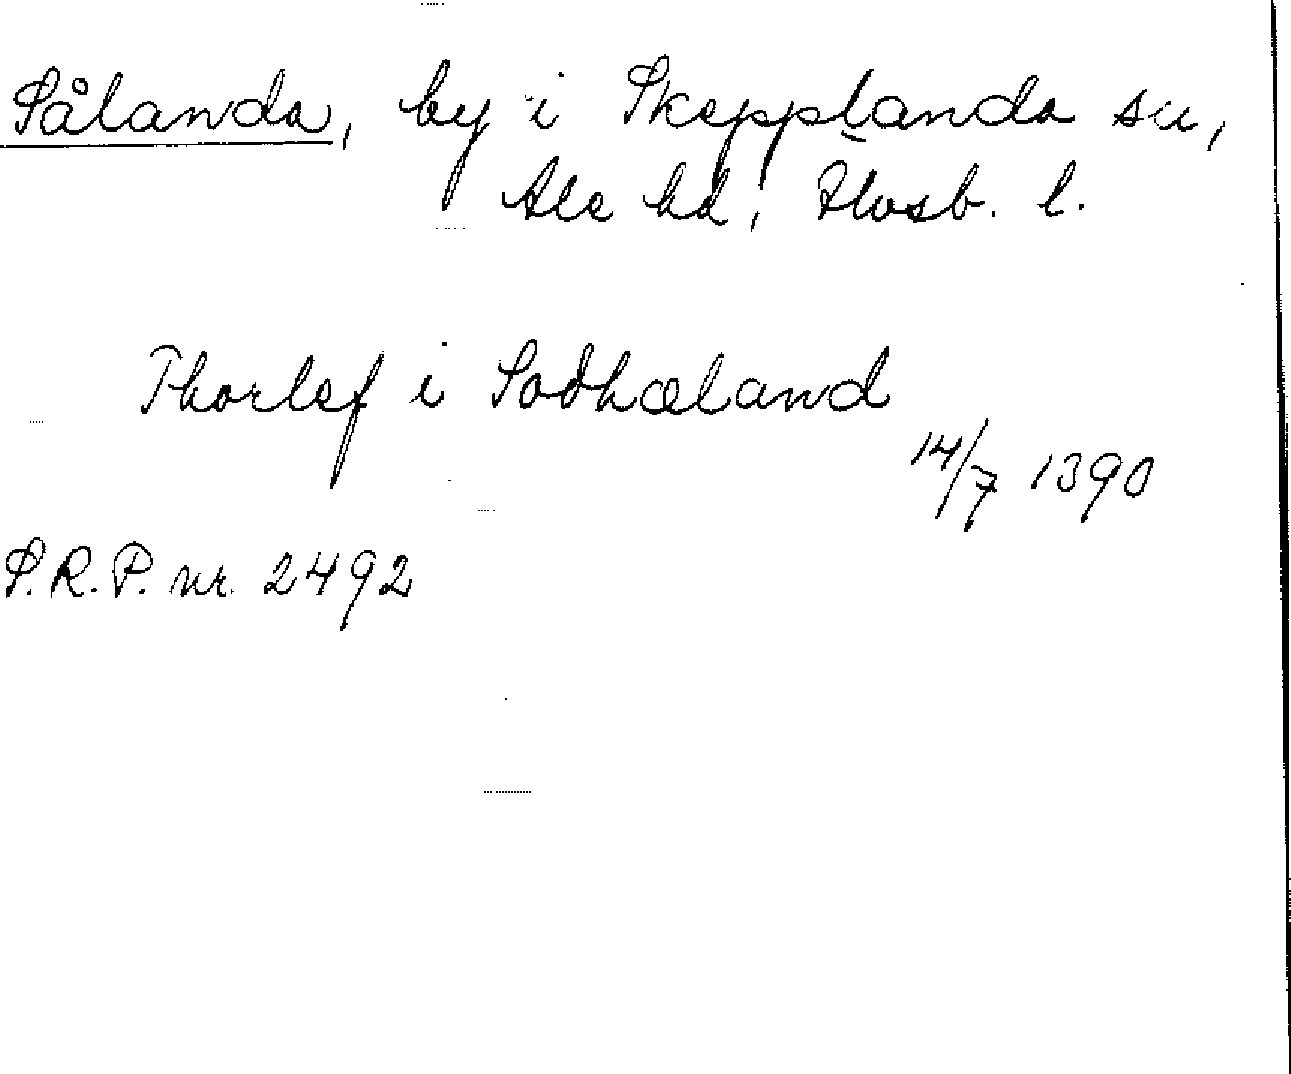 Sålanda, by i Skepplanda sn,
Ale hd, Älvsb. l.
Thorlef i Sodhæland
14/7 1390
S.R.P. nr. 2492